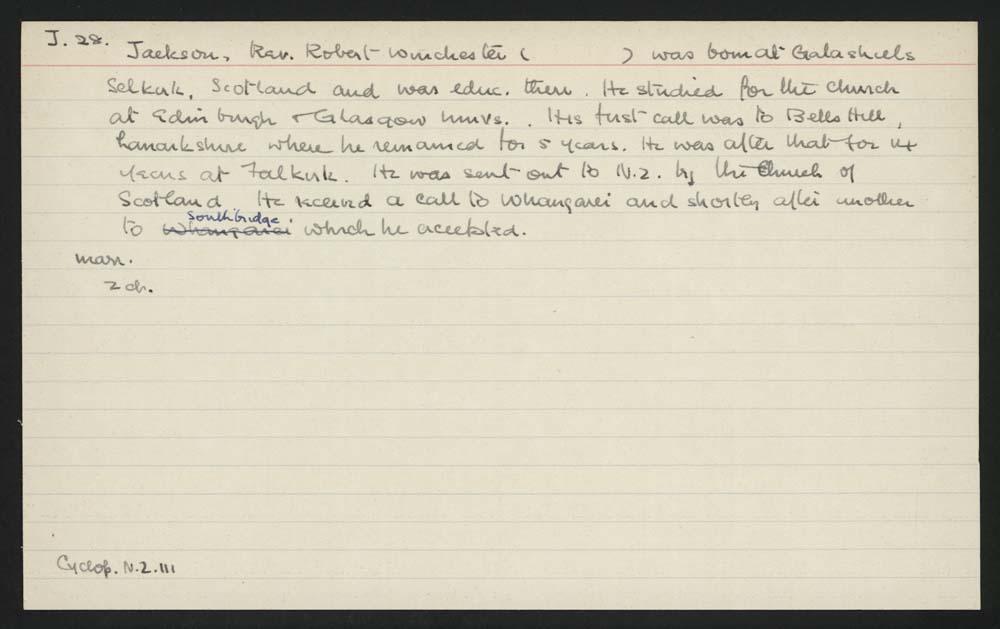 J. 28.
Jackson, Rev. Robert Winchester (          ) was born at Galashiels
Selkirk, Scotland and was educ. there. He studied for the church
at Edinburgh & Glasgow Univs. . His first call was to Bells Hill,
Lanarkshire where he remained for 5 years. He was after that for 14
years at Falkirk. He was sent out to N.Z. by the Church of
Scotland He received a call to Whangarei and shortly after another
Southbridge
to Whangarei which he accepted.
marr.
2 ch.
Cyclop. N.Z. III